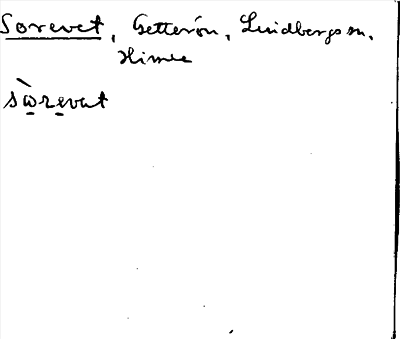 Sorevet, Getterön, Lindbergs sn,
Himle
sòrevat